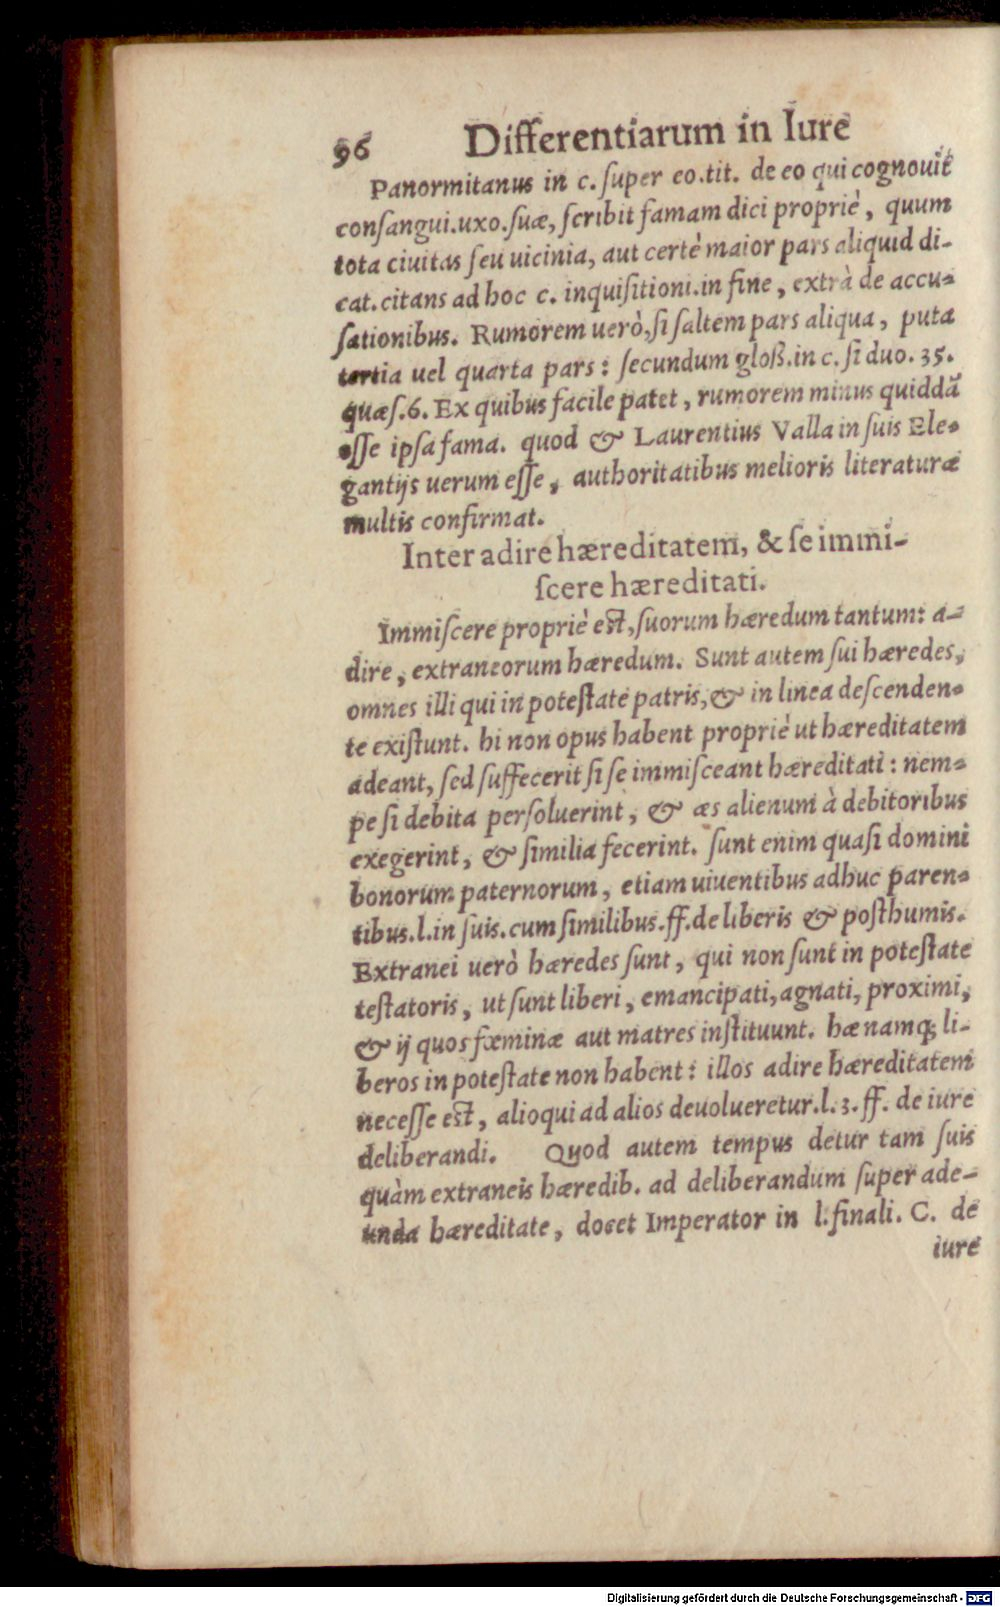 96 Differentiarum in Iure
Panormitanus in c. ſuper eo.tit. de eo qui cognouit
conſangui.uxo.ſuæ, ſcribit famam dici propriè, quum
tota ciuitas ſeu uicinia, aut certè maior pars aliquid di-
cat. citans ad hoc c. inquiſitioni.in fine, extrà de accu-
ſationibus. Rumorem uerò,ſi ſaltem pars aliqua, puta
tertia uel quarta pars: ſecundum gloß.in c. ſi duo. 35.
quæſ.6. Ex quibus facile patet, rumorem minus quiddã
eſſe ipſa fama. quod & Laurentius Valla in ſuis Ele-
gantijs uerum eſſe, authoritatibus melioris literaturæ
multis confirmat.
Inter adire hæreditatem, & ſe immi-
ſcere hæreditati.
Immiſcere propriè eſt,ſuorum hæredum tantum: a-
dire, extraneorum hæredum. Sunt autem ſui hæredes,
omnes illi qui in poteſtate patris,& in linea deſcenden-
te exiſtunt. hi non opus habent propriè ut hæreditatem
adeant, ſed ſuffecerit ſi ſe immiſceant hæreditati: nem-
pe ſi debita perſoluerint, & æs alienum à debitoribus
exegerint, & ſimilia fecerint. ſunt enim quaſi domini
bonorum paternorum, etiam uiuentibus adhuc paren-
tibus.l.in ſuis.cum ſimilibus.ff.de liberis & poſthumis.
Extranei uerò hæredes ſunt, qui non ſunt in poteſtate
teſtatoris, ut ſunt liberi, emancipati,agnati, proximi,
& ij quos fœminæ aut matres inſtituunt. hæ namq; li-
beros in poteſtate non habent: illos adire hæreditatem
neceſſe eſt, alioqui ad alios deuolueretur.l.3.ff. de iure
deliberandi. Quod autem tempus detur tam ſuis
quàm extraneis hæredib. ad deliberandum ſuper ade-
unda hæreditate, docet Imperator in l.finali. C. de
iure
Digitalisierung gefördert durch die Deutsche Forschungsgemeinschaft - DFG